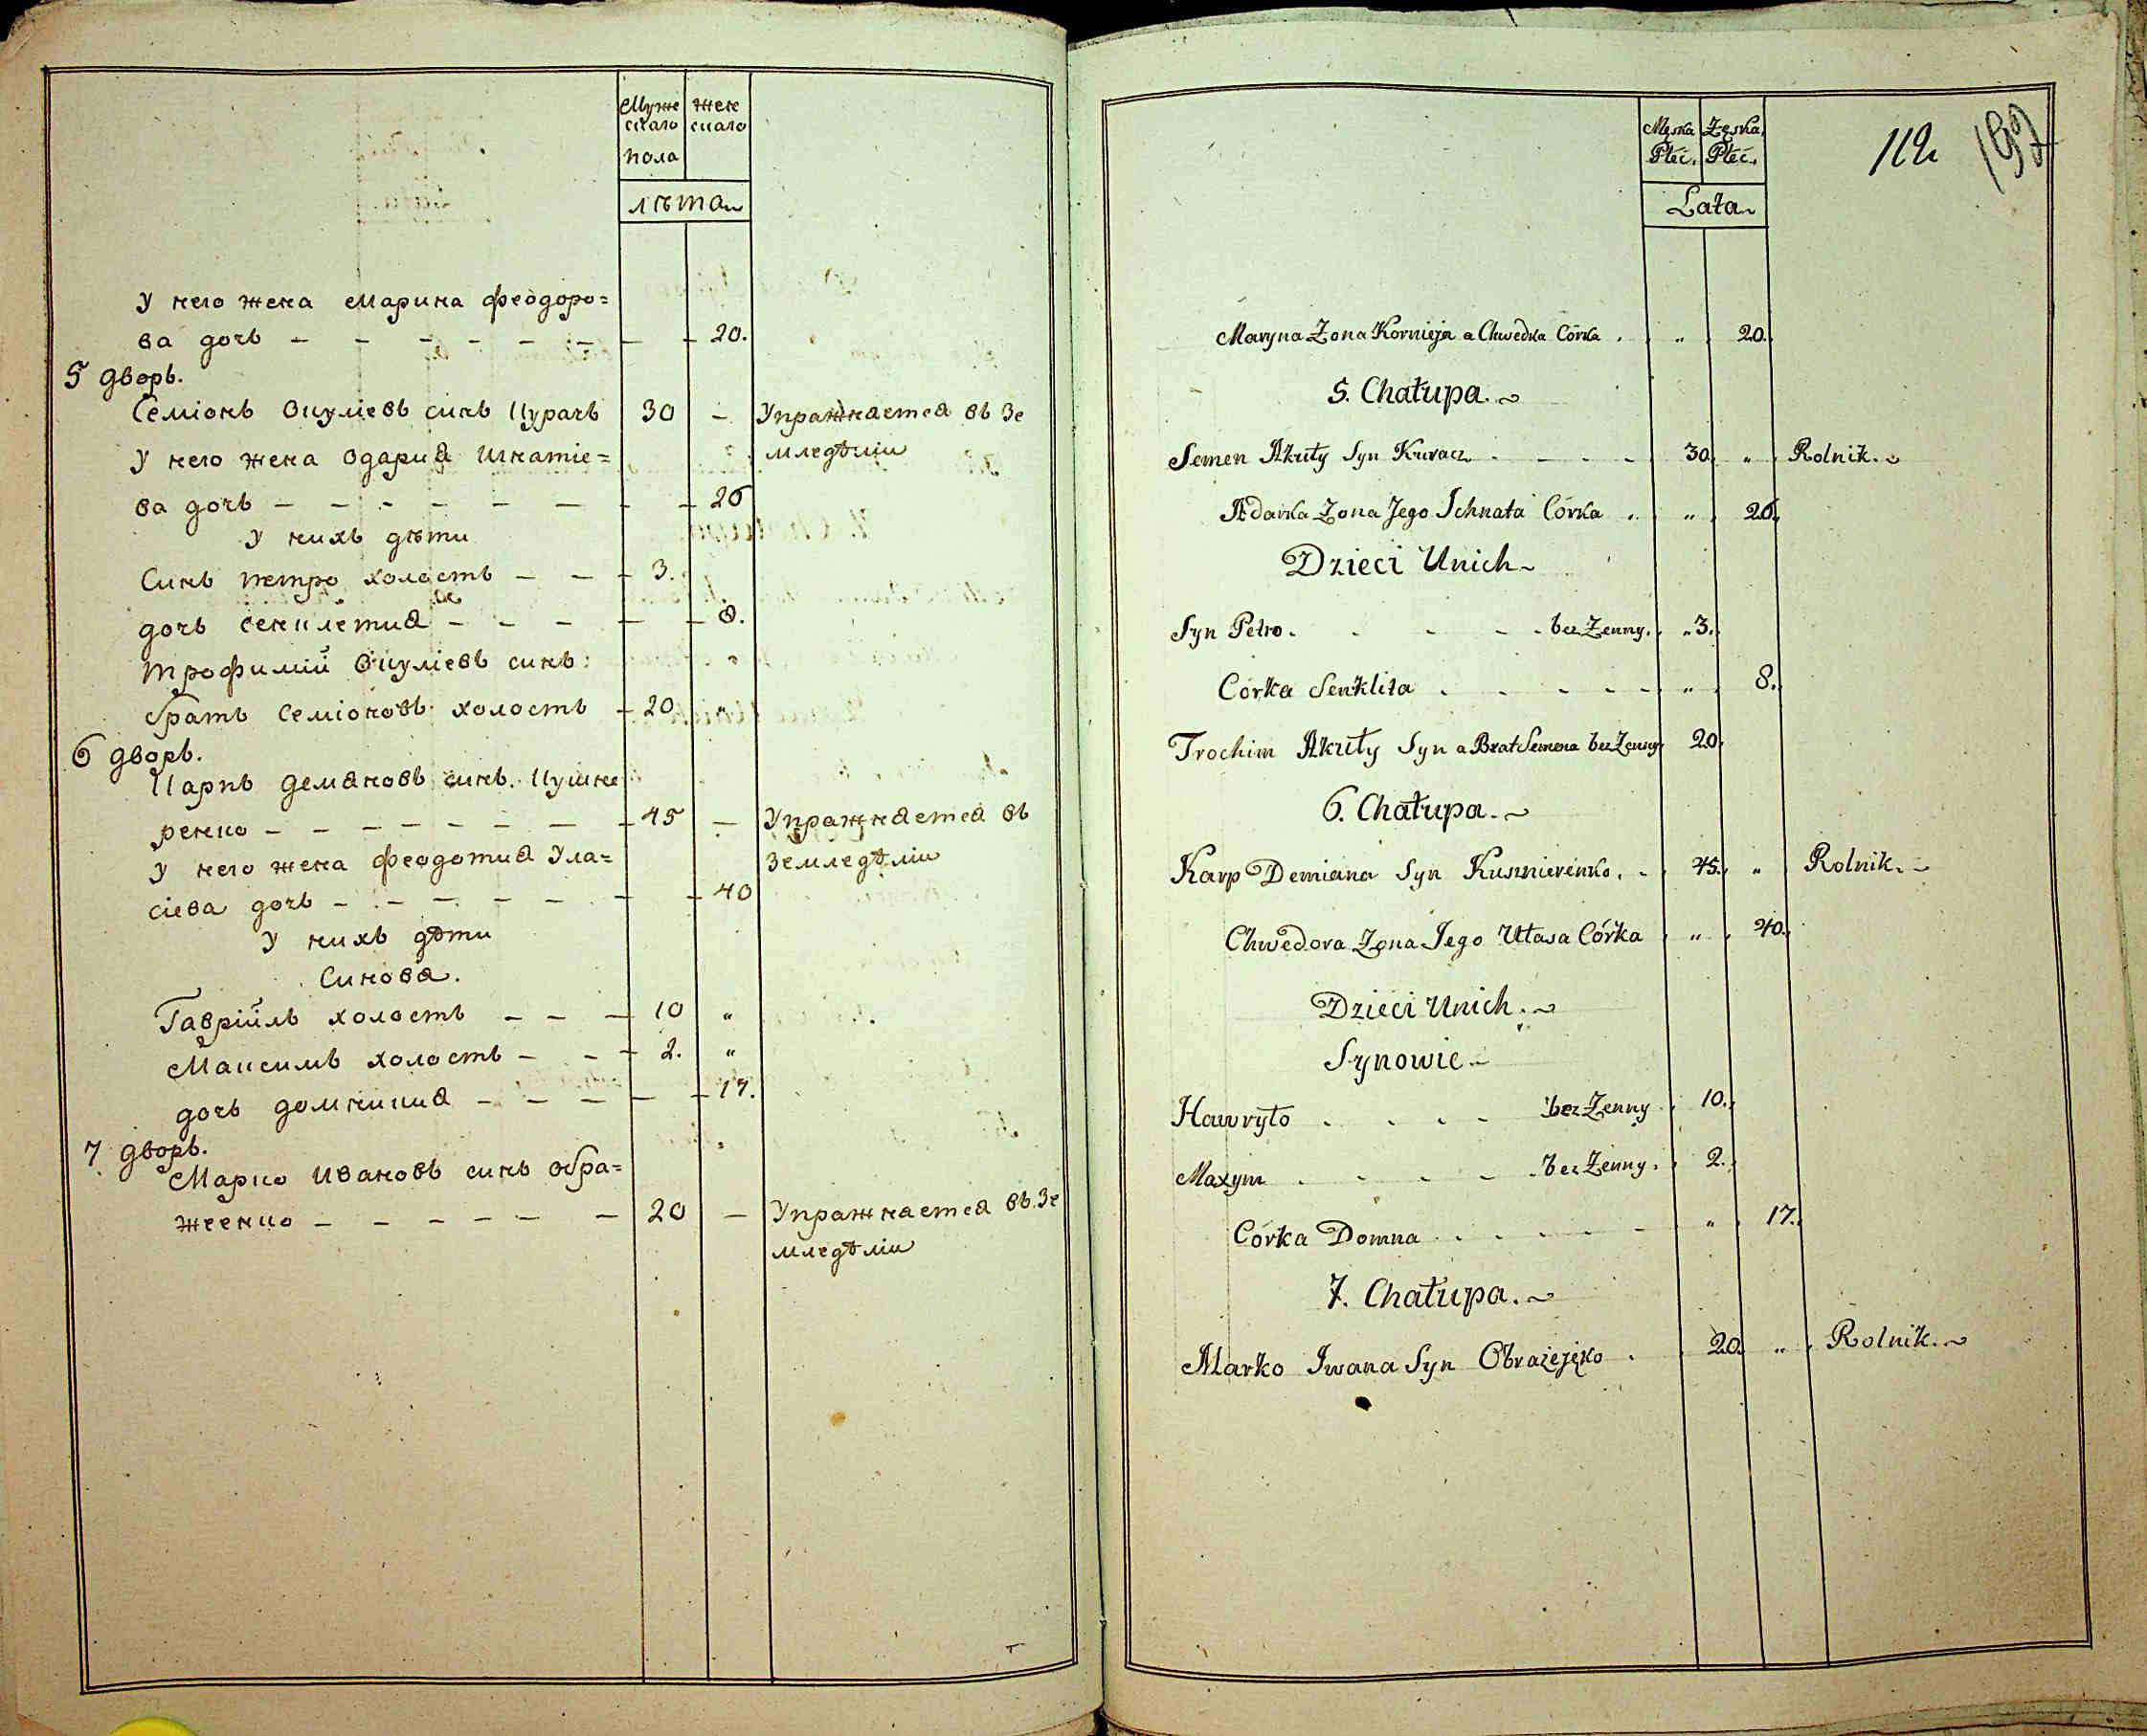 Муже
скаго
пола
жен
скаго
лѣта
У него жена Марина Феодоро=
ва дочь — — — — — — — 20.
5 дворъ.
Семіонъ Окуліевъ синъ Курачъ 30 — Упражняется въ Зе
мледѣліи
У него жена Одария Игнатіе=
ва дочь — — — — — — — 26
У нихъ дѣти
Синъ Петро холостъ — — — 3.
дочь Сенклетия — — — — — 8.
Трофимій Окуліевъ синъ "
братъ Семіоновъ холостъ — 20 "
6 дворъ.
Карпъ Демяновъ синъ Кушне
ренко — — — — — — — 45 — Упражняется въ
Земледѣліи
У него жена Феодотия Ула=
сіева дочь — — — — — — — 40
У нихъ дѣти
Синова.
Гавріилъ холостъ — — — 10 "
Максимъ холостъ — — — 2. "
дочь Домникия — — — — — 17.
7 дворъ.
Марко Ивановъ синъ Обра=
жеенко — — — — — — 20 — Упражняется въ Зе
мледѣліи
112 197
Męska
Płeć.
Zęska
Płeć.
Lata
Maryna Zona Kornieja a Chwedka Córka . „ 20.
5. Chałupa.
Semen Akuły Syn Kuracz . . . . 30. „ Rolnik.
Adarka Zona Jego Ichnata Córka . „ 26.
Dzieci Unich
Syn Petro . . . . . bez Zenny. „ 3.
Córka Senklita . . . . . „ 8.
Trochim Akuły Syn a Brat Semena bez Zenny 20.
6. Chałupa.
Karp Demiana Syn Kusznierenko. . 45. „ Rolnik.
Chwedora Zona Jego Ułasa Córka . „ 40.
Dzieci Unich.
Synowie
Hawryło . . . . bez Zenny . 10.
Maxym . . . . . bez Zenny. . 2.
Córka Domna . . . . . „ 17.
7. Chałupa.
Marko Iwana Syn Obrażejęko . 20. „ Rolnik.